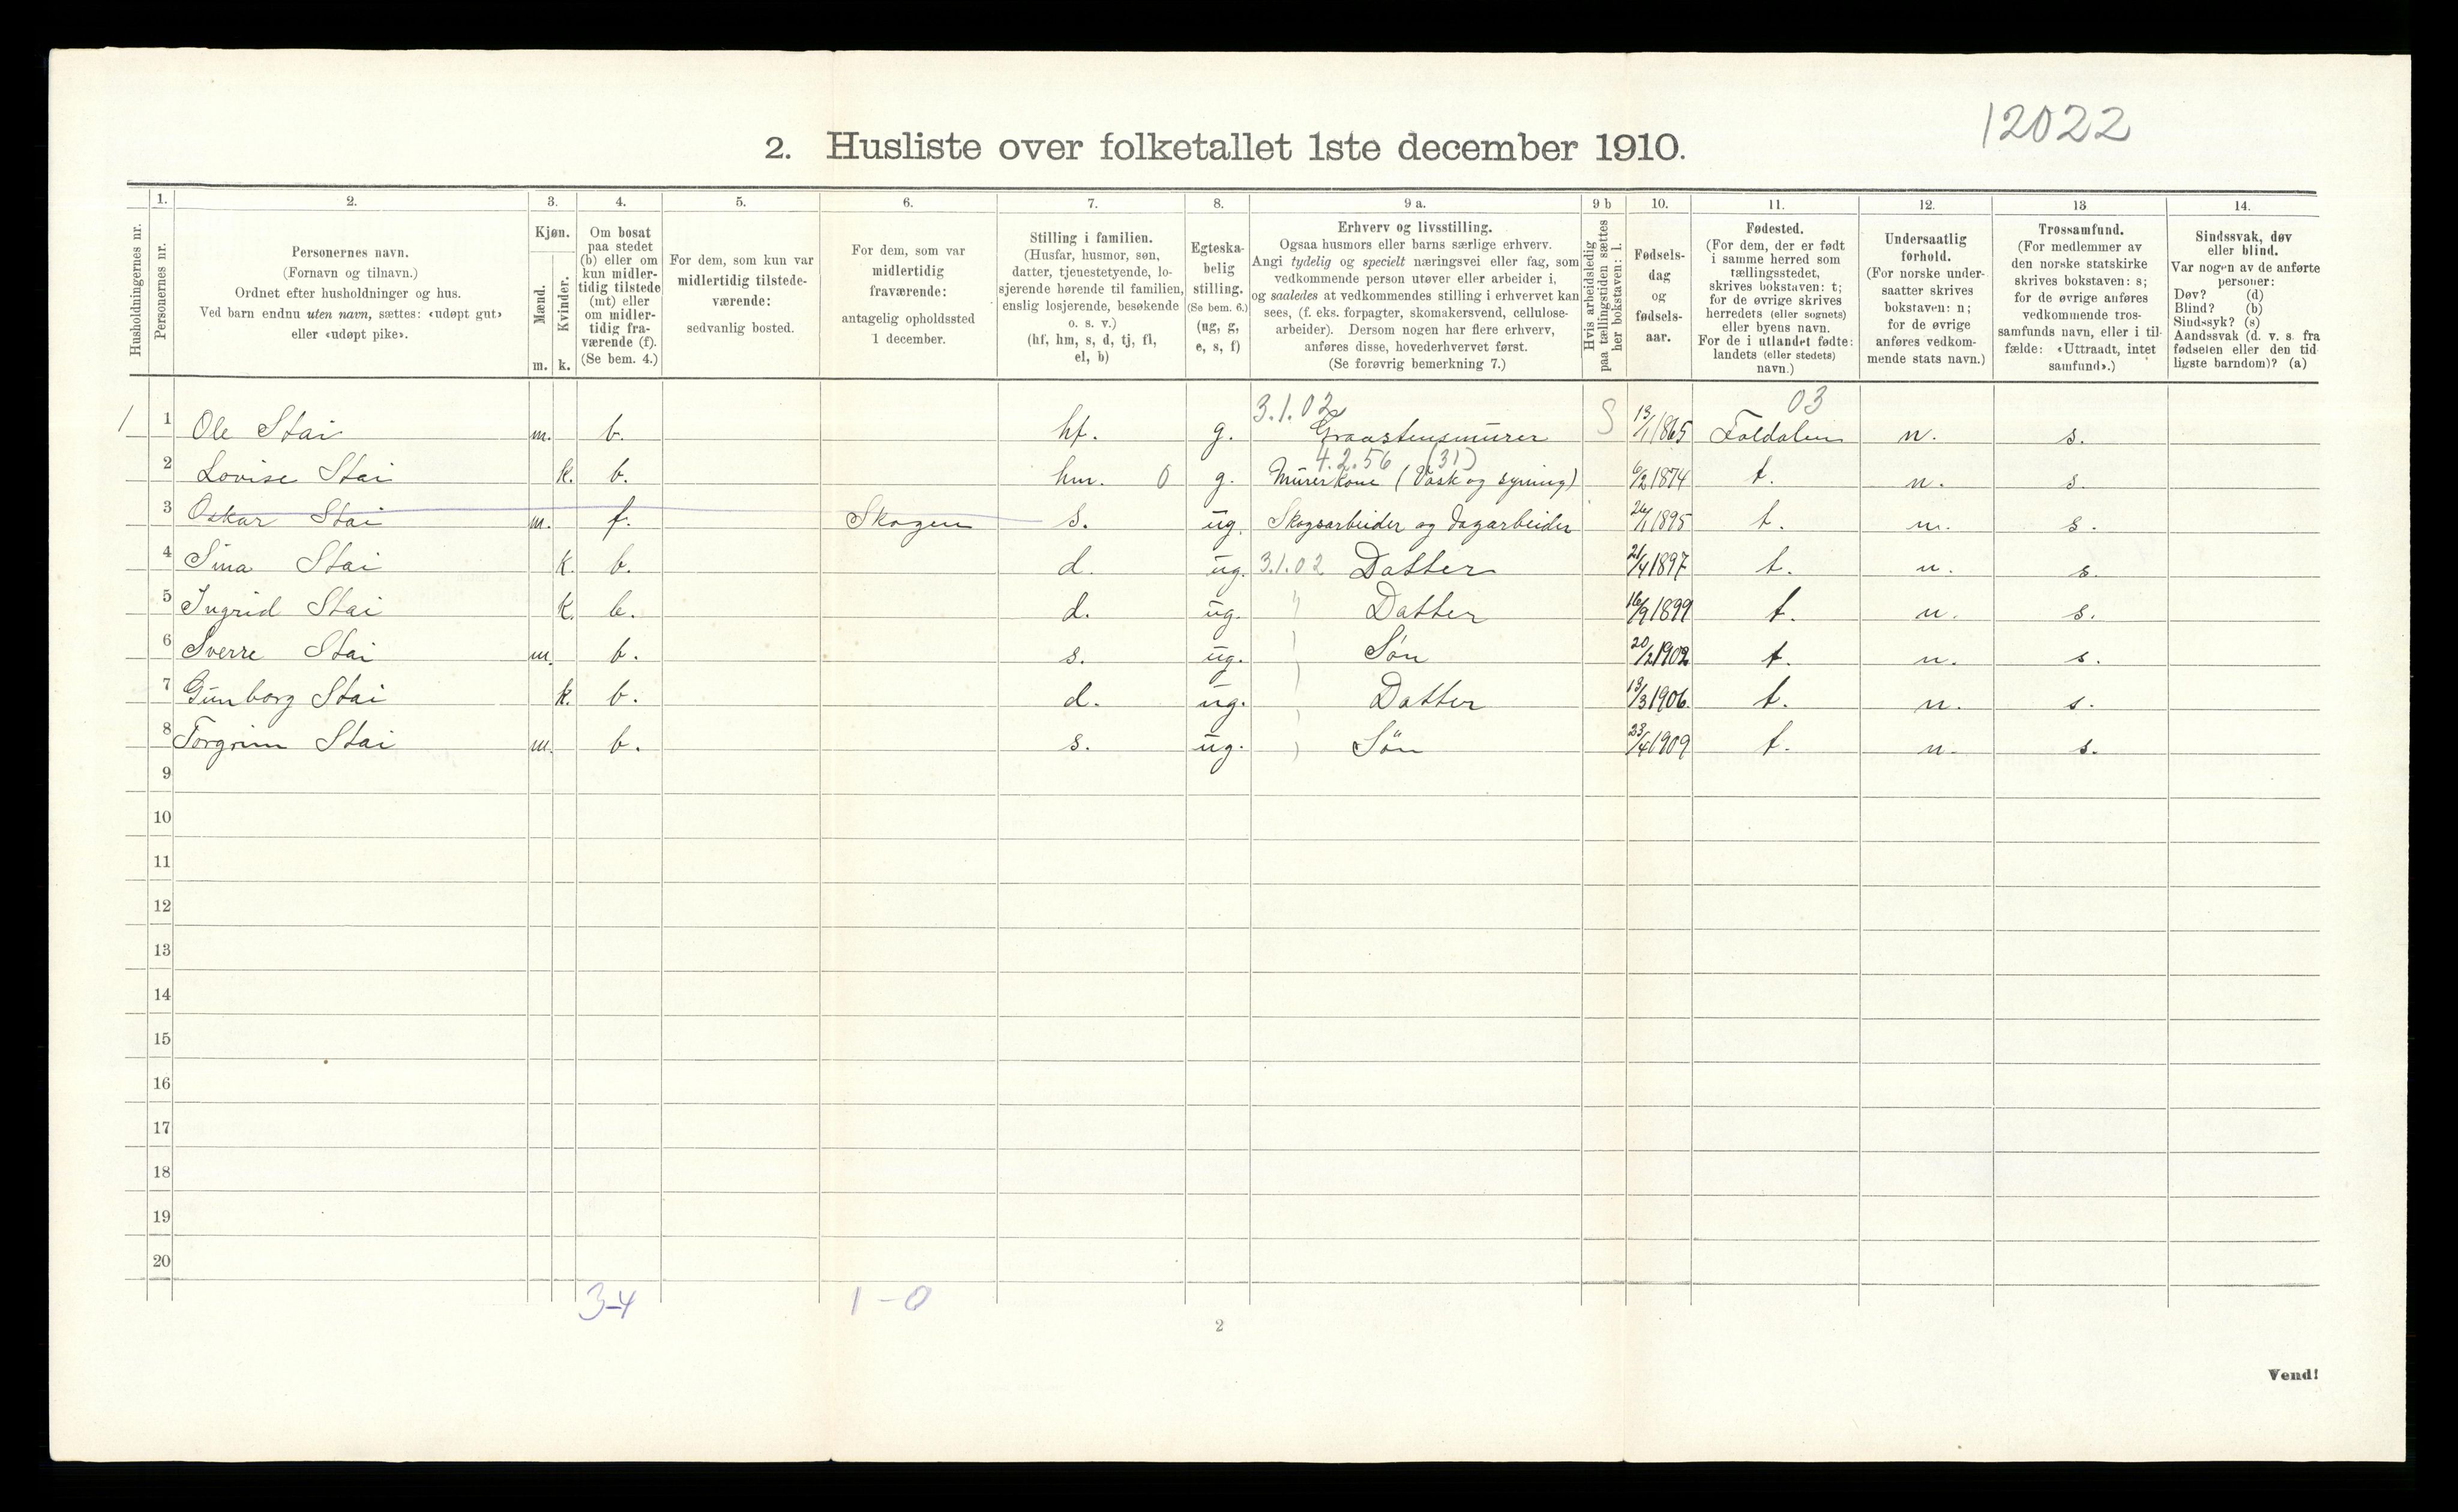 12022
2. Husliste over folketallet 1ste december 1910.
1. 2. 3. 4. 5. 6. 7. 8. 9 a. 9 b 10. 11. 12. 13 14.
Husholdningernes nr.
Personernes nr.
Personernes navn.
(Fornavn og tilnavn.)
Ordnet efter husholdninger og hus.
Ved barn endnu uten navn, sættes: «udøpt gut»
eller «udøpt pike».
Kjøn.
Mænd.
Kvinder.
m. k.
Om bosat
paa stedet
(b) eller om
kun midler-
tidig tilstede
(mt) eller
om midler-
tidig fra-
værende (f).
(Se bem. 4.)
For dem, som kun var
midlertidig tilstede-
værende:
sedvanlig bosted.
For dem, som var
midlertidig
fraværende:
antagelig opholdssted
1 december.
Stilling i familien.
(Husfar, husmor, søn,
datter, tjenestetyende, lo-
sjerende hørende til familien,
enslig losjerende, besøkende
o. s. v.)
(hf, hm, s, d, tj, fl,
el, b)
Egteska-
belig
stilling.
(Se bem. 6.)
(ug, g,
e, s, f)
Erhverv og livsstilling.
Ogsaa husmors eller barns særlige erhverv.
Angi tydelig og specielt næringsvei eller fag, som
vedkommende person utøver eller arbeider i,
og saaledes at vedkommendes stilling i erhvervet kan
sees, (f. eks. forpagter, skomakersvend, cellulose-
arbeider). Dersom nogen har flere erhverv,
anføres disse, hovederhvervet først.
(Se forøvrig bemerkning 7.)
Hvis arbeidsledig
paa tællingstiden sættes
her bokstaven: l.
Fødsels-
dag
og
fødsels-
aar.
Fødested.
(For dem, der er født
i samme herred som
tællingsstedet,
skrives bokstaven: t;
for de øvrige skrives
herredets (eller sognets)
eller byens navn.
For de i utlandet fødte:
landets (eller stedets)
navn.)
Undersaatlig
forhold.
(For norske under-
saatter skrives
bokstaven: n;
for de øvrige
anføres vedkom-
mende stats navn.)
Trossamfund.
(For medlemmer av
den norske statskirke
skrives bokstaven: s;
for de øvrige anføres
vedkommende tros-
samfunds navn, eller i til-
fælde: «Uttraadt, intet
samfund».)
Sindssvak, døv
eller blind.
Var nogen av de anførte
personer:
Døv? (d)
Blind? (b)
Sindssyk? (s)
Aandssvak (d. v. s. fra
fødselen eller den tid-
ligste barndom)? (a)
3.1.02 03
1 1 Ole Stai m. b. hf. g. Graastensmurer S 13/1 1865 Foldalen n. s.
4.2.56 (31)
2 Lovise Stai k. b. hm. 0 g. Murerkone (Vask og syning) 6/2 1874 t. n. s.
3 Oskar Stai m. f. Skogen s. ug. Skogsarbeider og dagarbeider 26/1 1895 t. n. s.
4 Sina Stai k. b. d. ug. 3.1.02 Datter 21/4 1897 t. n. s.
5 Ingrid Stai k. b. d. ug. " Datter 16/9 1899 t. n. s.
6 Sverre Stai m. b. s. ug. Søn 20/2 1902 t. n. s.
7 Gunborg Stai k. b. d. ug. Datter 13/3 1906. t. n. s.
8 Torgrim Stai m. b. s. ug. Søn 23/4 1909 t. n. s.
9
10
11
12
13
14
15
16
17
18
19
20
3-4 1-0
2
Vend!